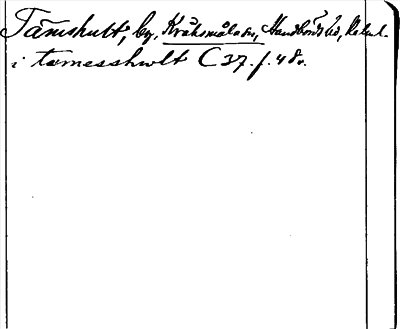 Tämshult, by, Kråksmåla sn, Handbörds hd, Kalm.l.
i tæmesshwlt C 37. f. 48v.